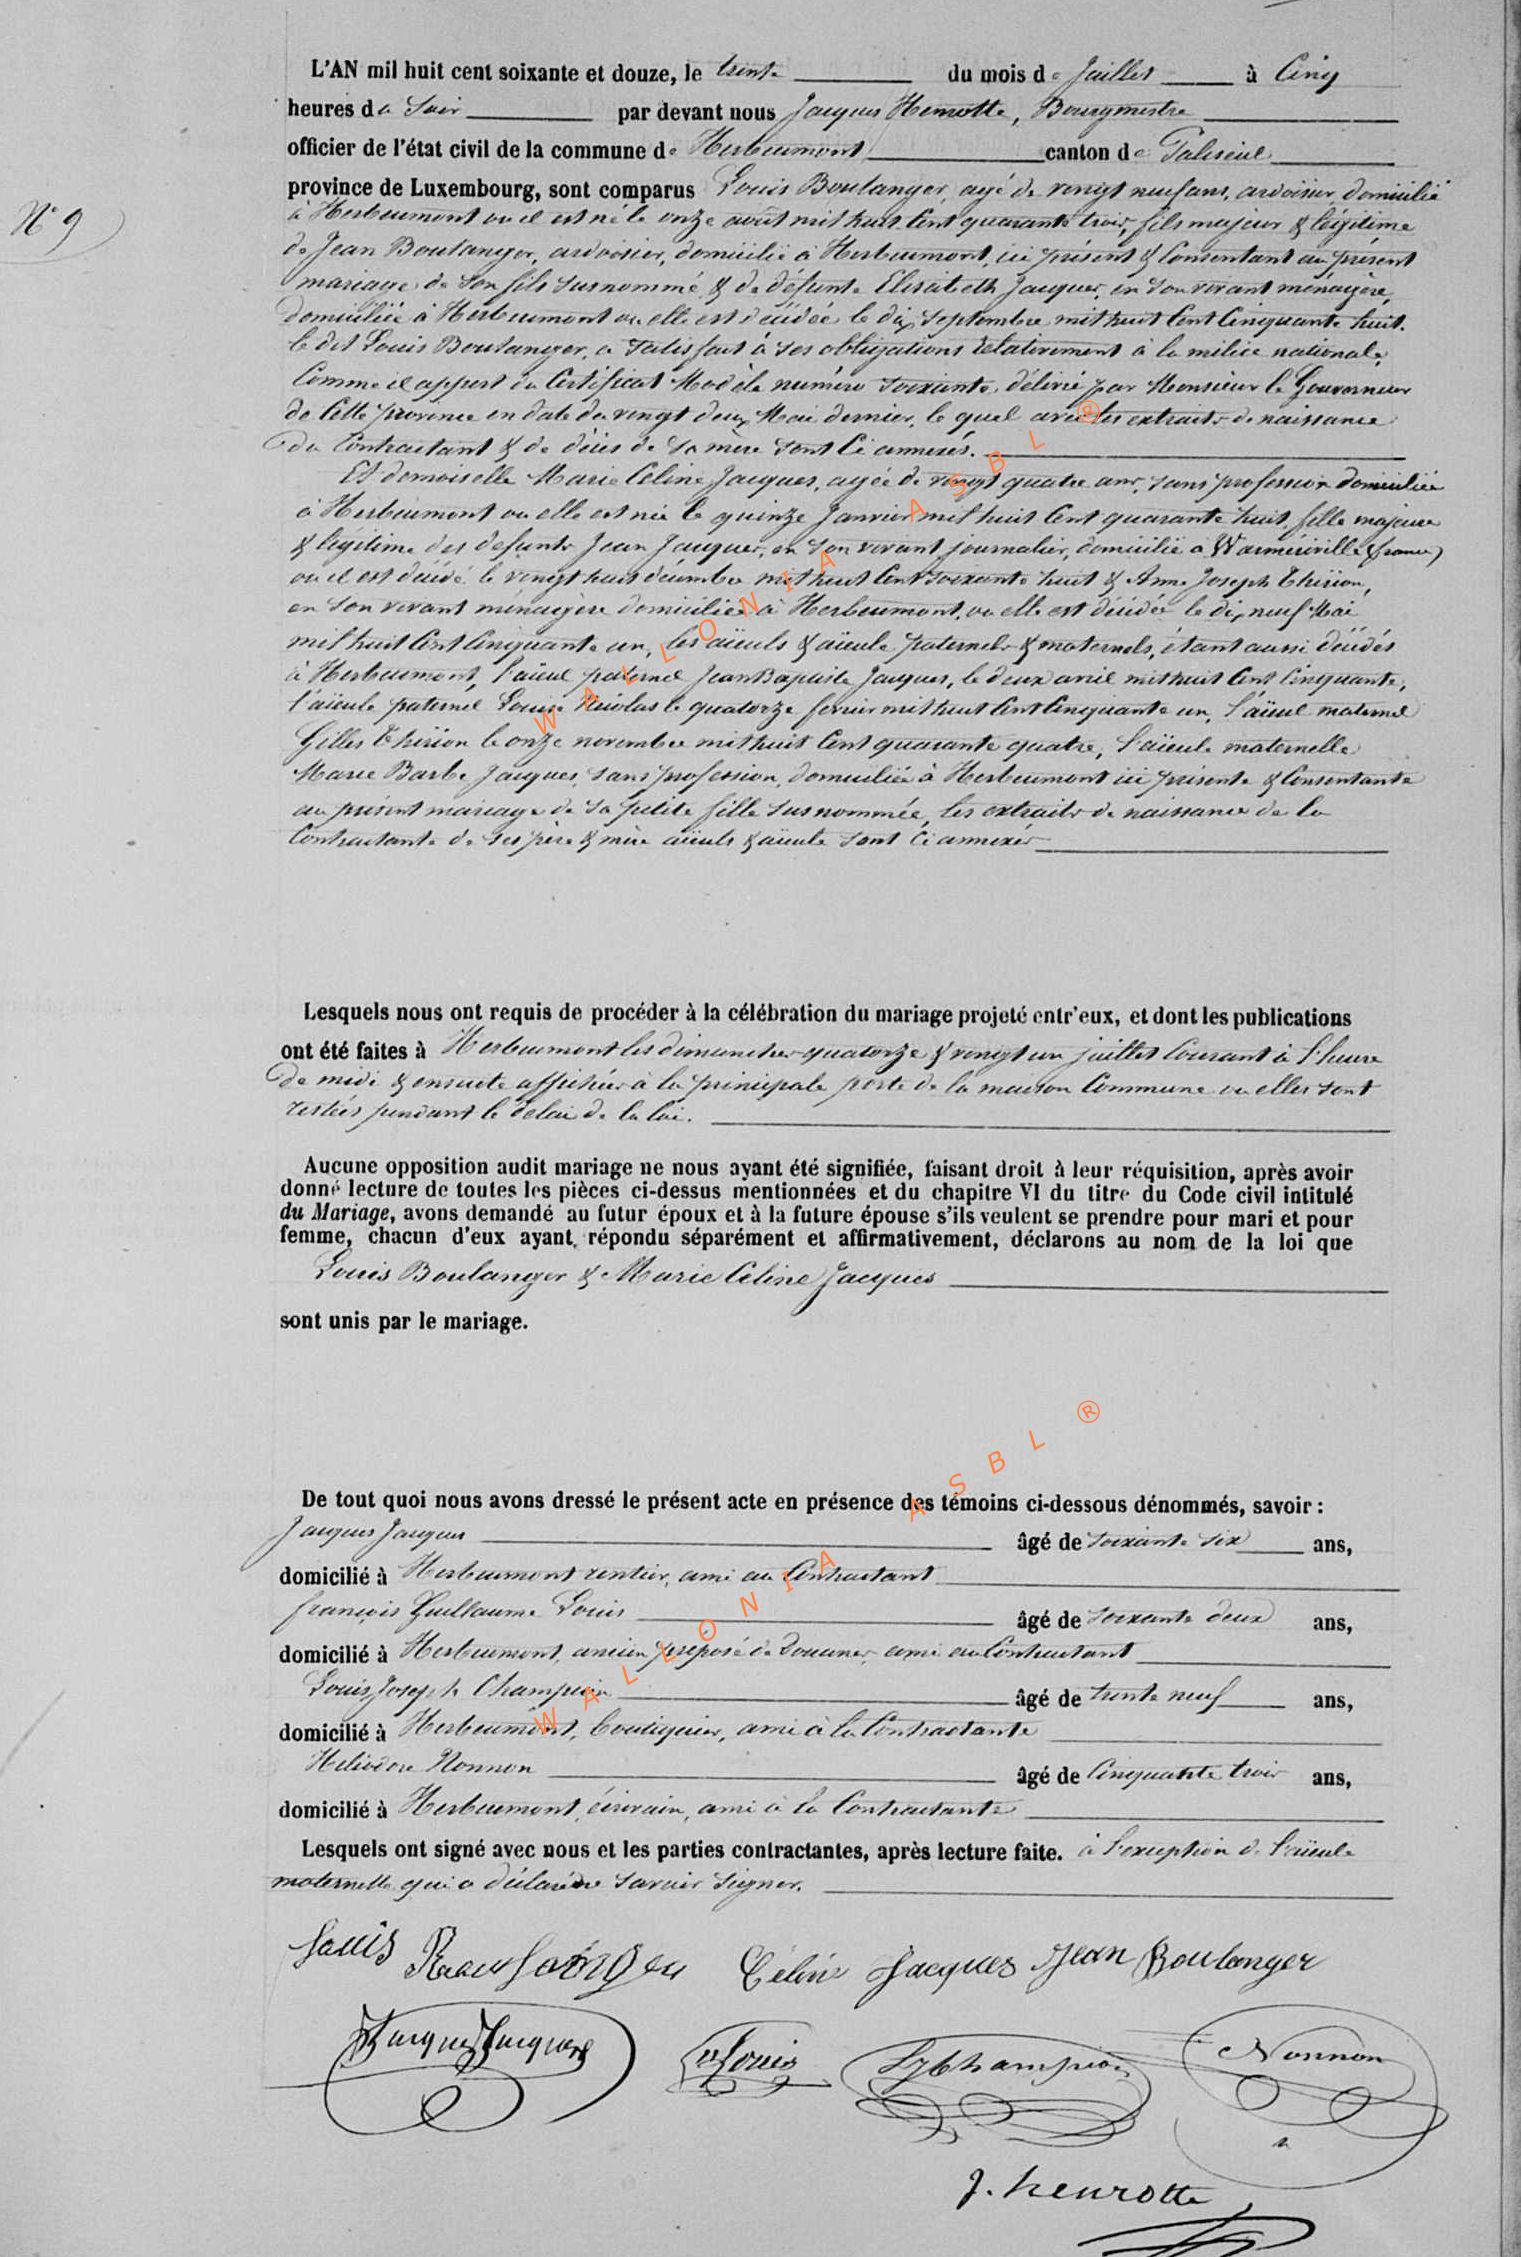 L'AN mil huit cent soixante et douze, le trente du mois de Juillet à Cinq
heures du Soir par devant nous Jacques Henrotte, Bourgmestre
officier de l'état civil de la commune de Herbeumont canton de Paliseul
province de Luxembourg, sont comparus Louis Boulanger, agé de vingt neuf ans, ardoisier, domicilié
N° 9
à Herbeumont ou il est né le onze août mil huit Cent quarante trois, fils majeur & légitime
de Jean Boulanger, ardoisier, domicilié à Herbeumont, ici présent & Consentant au présent
mariage de son fils susnommé & de défunte Elisabeth Jacques, en son vivant ménagère,
domiciliée à Herbeumont ou elle est décédée le dix Septembre mil huit Cent Cinquante huit.
le dit Louis Boulanger, a satisfait à ses obligations relativement à la milice nationale,
Comme il appert du Certificat Modèle numéro soixante, délivré par Monsieur le Gouverneur
de Cette province en date du vingt deux Mai dernier, le quel avec les extraits de naissance
du Contractant & de décès de sa mère sont Ci annexés.
Et demoiselle Marie Celine Jacques, agée de vingt quatre ans, sans profession domiciliée
à Herbeumont ou elle est née le quinze Janvier mil huit Cent quarante huit, fille majeure
& légitime des defunts Jean Jacques, en son vivant journalier, domicilié à Warmériville (france)
ou il est décédé le vingt huit décembre mil huit Cent soixante huit & Anne Joseph Thirion,
en son vivant ménagère domiciliée à Herbeumont, ou elle est décédée le dix neuf Mai
mil huit Cent Cinquante un, les aïeuls & aïeule paternels & maternels, étant aussi décédés
à Herbeumont, l'aïeul paternel Jean Baptiste Jacques, le deux avril mil huit Cent Cinquante,
l'aïeule paternel Louise Nicolas le quatorze fevrier mil huit Cent Cinquante un, l'aïeul maternel
Gilles Thirion le onze novembre mil huit Cent quarante quatre, l'aïeule maternelle
Marie Barbe Jacques, sans profession, domiciliée à Herbeumont ici présente & Consentante
au présent mariage de sa petite fille susnommée, les extraits de naissance de la
Contractante de ses père & mère aïeuls & aïeule sont Ci annexés
Lesquels nous ont requis de procéder à la célébration du mariage projeté entr'eux, et dont les publications
ont été faites à Herbeumont les dimanches quatorze & vingt un juillet Courant à l'heure
de midi & ensuite affichées à la principale porte de la maison Commune ou elles sont
restées pendant le délai de la loi.
Aucune opposition audit mariage ne nous ayant été signifiée, faisant droit à leur réquisition, après avoir
donné lecture de toutes les pièces ci-dessus mentionnées et du chapitre VI du titre du Code civil intitulé
du Mariage, avons demandé au futur époux et à la future épouse s'ils veulent se prendre pour mari et pour
femme, chacun d'eux ayant répondu séparément et affirmativement, déclarons au nom de la loi que
Louis Boulanger & Marie Celine Jacques
sont unis par le mariage.
De tout quoi nous avons dressé le présent acte en présence des témoins ci-dessous dénommés, savoir :
Jacques Jacques âgé de soixante six ans,
domicilié à Herbeumont rentier, ami au Contractant
françois Guillaume Louis âgé de soixante deux ans,
domicilié à Herbeumont, ancien préposé de Douanes, ami au Contractant
Louis Joseph Champion âgé de trente neuf ans,
domicilié à Herbeumont, boutiquier, ami à la Contractante
Heliodore Nonnon âgé de Cinquante trois ans,
domicilié à Herbeumont, écrivain, ami à la Contractante
Lesquels ont signé avec nous et les parties contractantes, après lecture faite. à l'exception de l'aïeule
maternelle qui a déclaré ne savoir signer.
Louis Boulanger Céline Jacques Jean Boulanger
Jacques Jacques Louis Champion Nonnon
J. henrotte
WALLONIA ASBL ®
WALLONIA ASBL ®